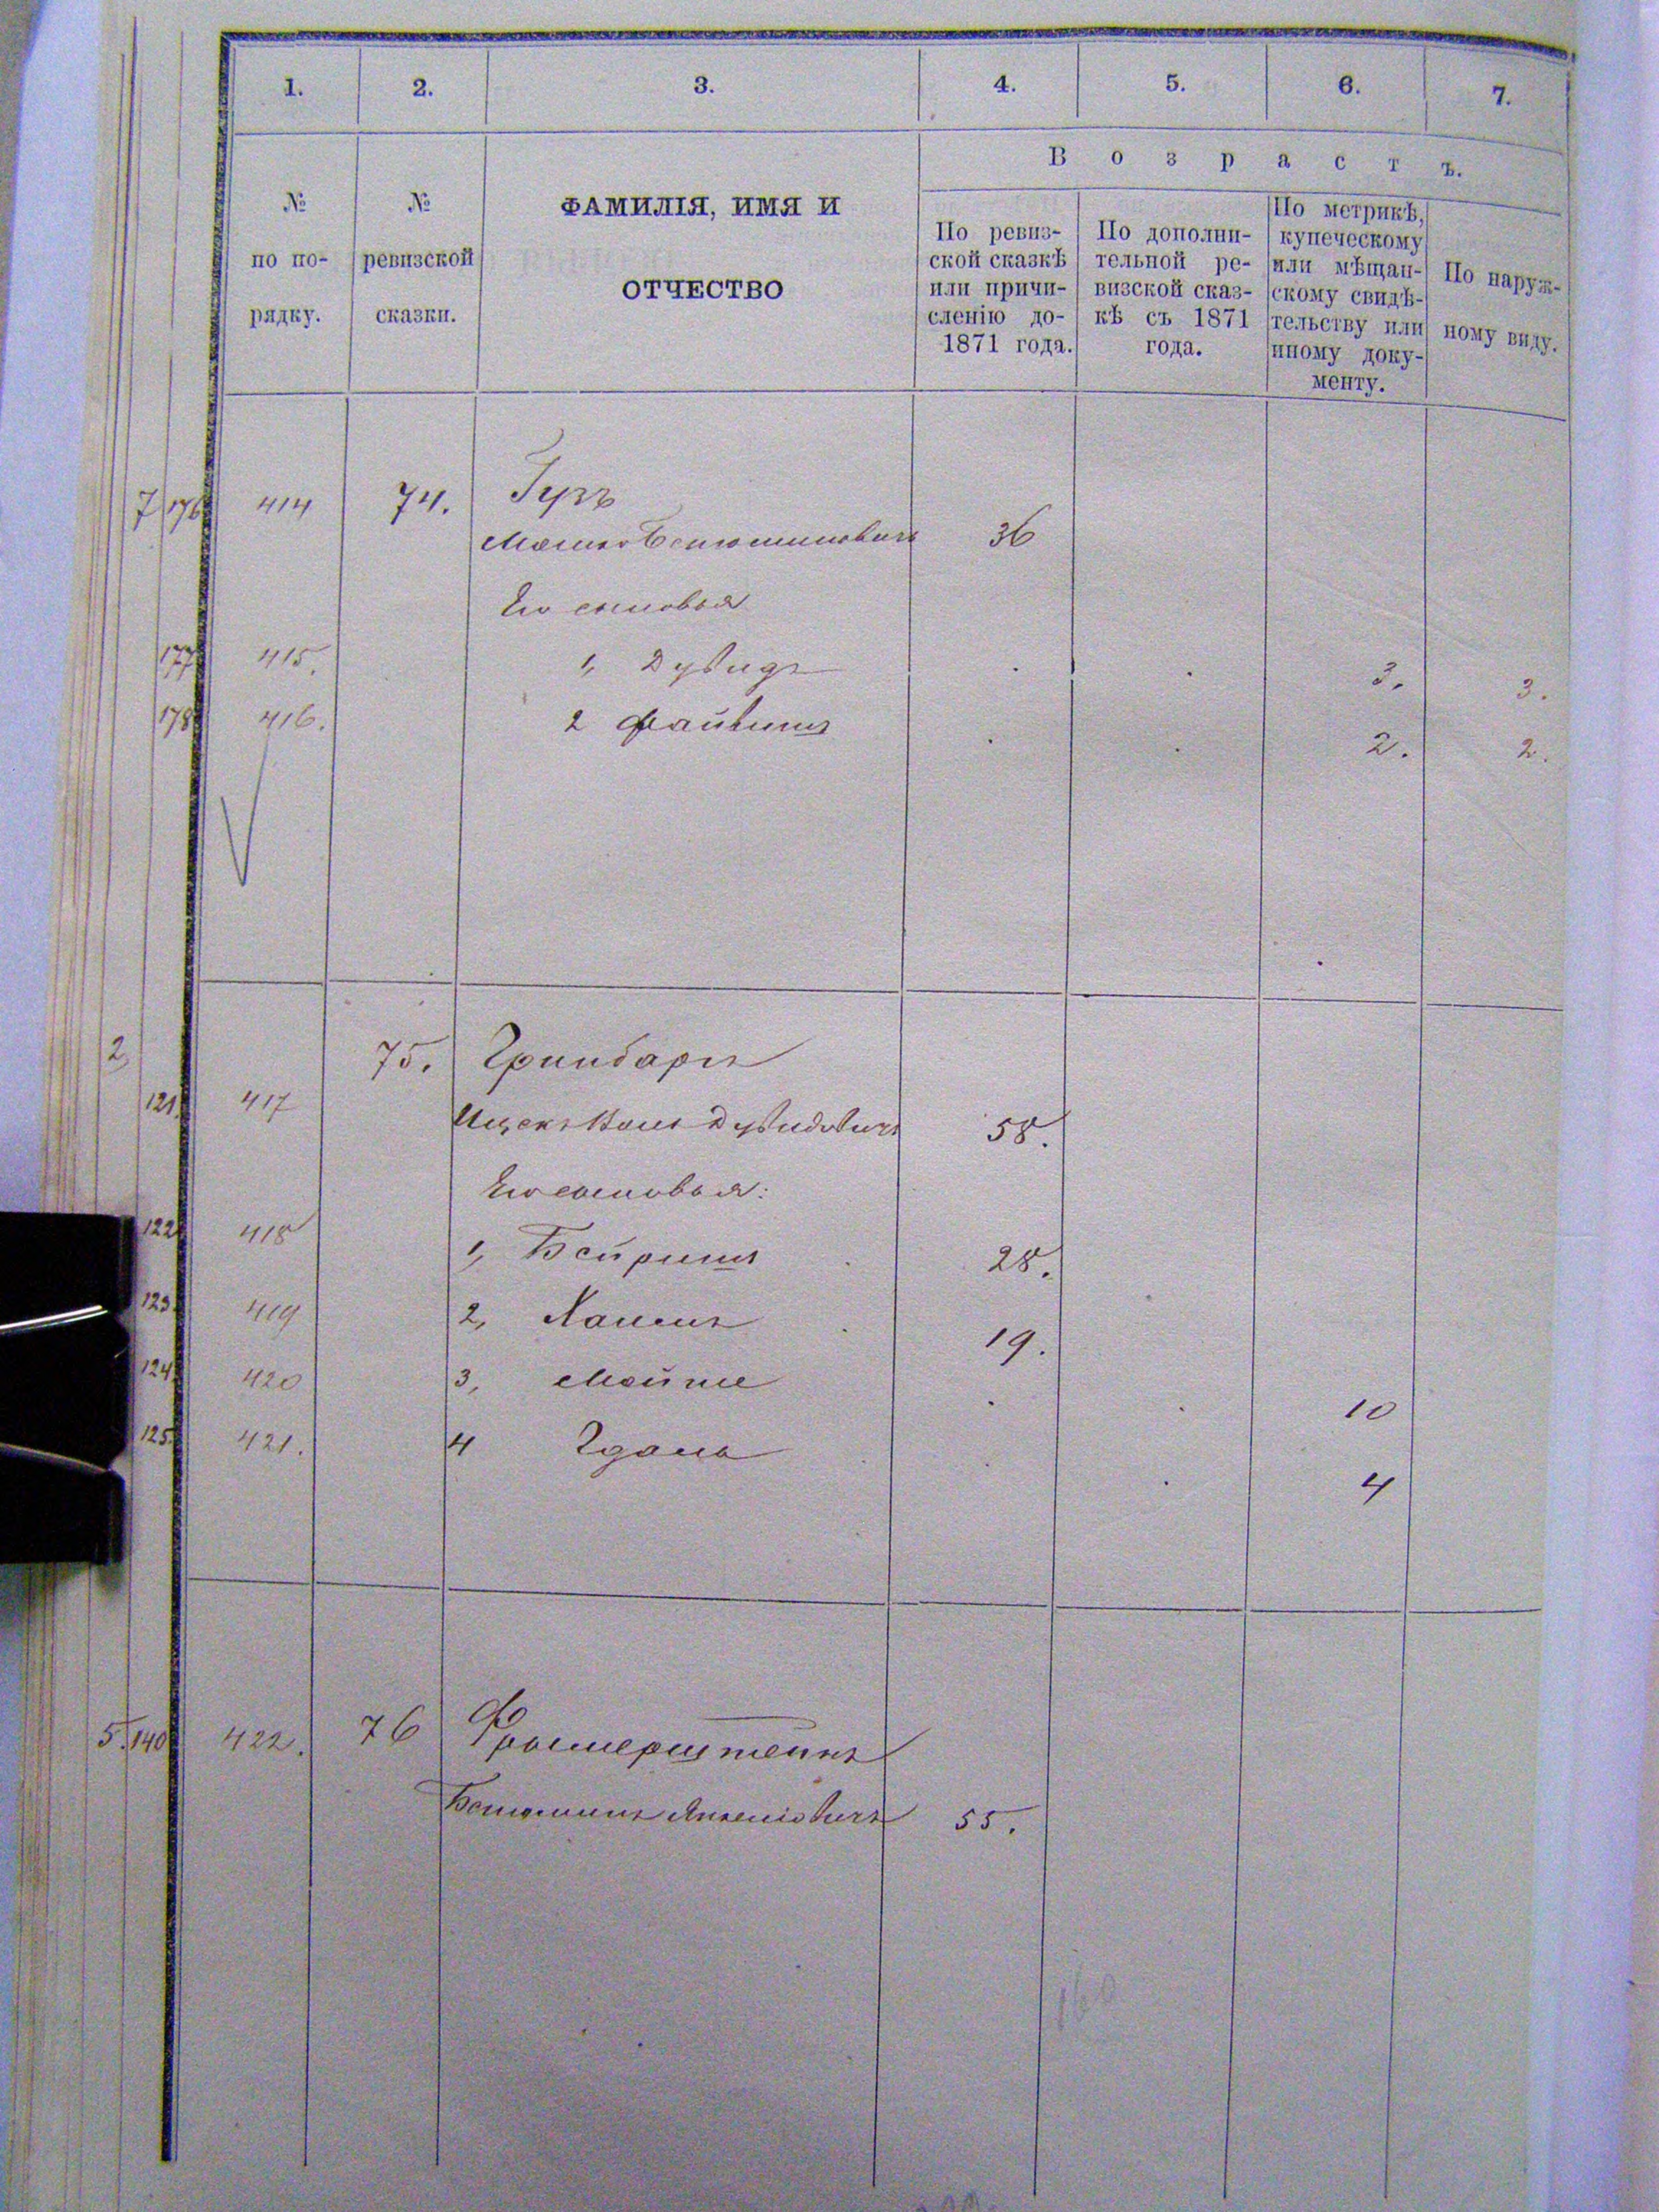 1. 2. 3. 4. 5. 6. 7.
Возрастъ.
№ по по-рядку.
№ ревизской сказки.
ФАМИЛІЯ, ИМЯ И
ОТЧЕСТВО
По ревиз-
ской сказкѣ
или причи-
сленію до-
1871 года.
По дополни-
тельной ре-
визской сказ-
кѣ съ 1871
года.
По метрикѣ,
купеческому
или мѣщан-
скому свидѣ-
тельству или
иному доку-
менту.
По наруж-
ному виду.
7 176 414 74. Гузъ
Мошко Беніоминовичъ 36
Его сыновья
177 415. 1, Дувидъ . . 3. 3.
178 416. 2 Файвишъ . . 2. 2.
2, 75. Гринбаръ
121. 417 Ицекъ Дувидовичъ 58.
Его сыновья:
122 418 1, Бейришъ 28.
123. 419 2, Хаимъ 19.
124 420 3, Мойше . . 10
125. 421. 4 Гдаль . . 4
5. 140 422. 76
Беніоминъ 55.
160